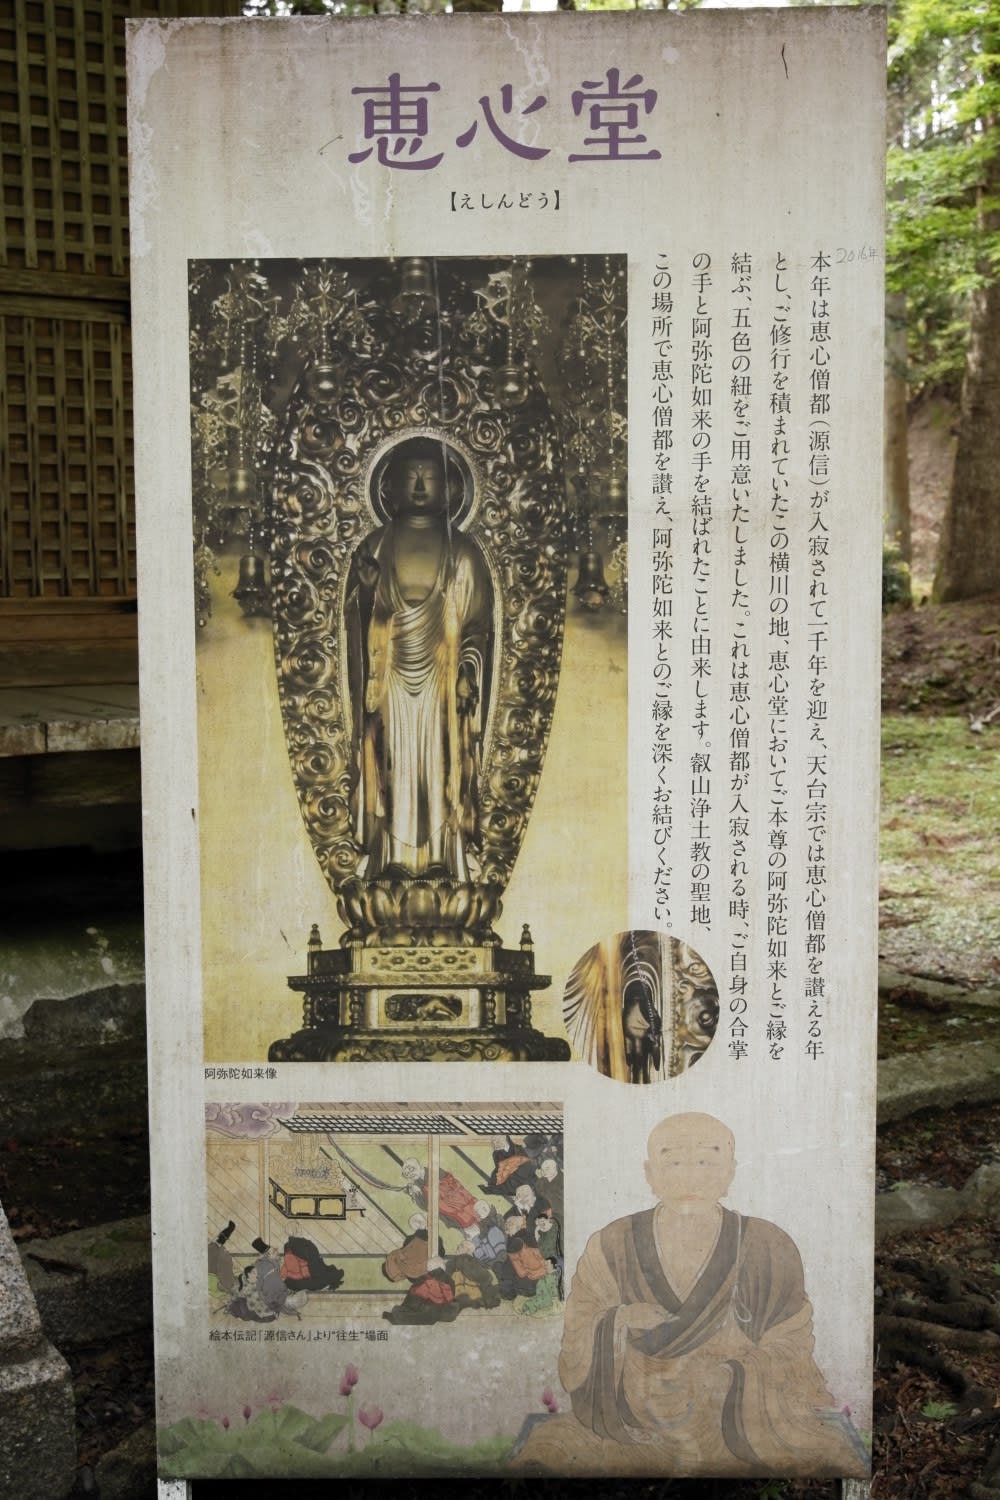 恵心堂
【えしんどう】
2016年
本年は恵心僧都(源信)が入寂されて一千年を迎え、天台宗では恵心僧都を讃える年
とし、ご修行を積まれていたこの横川の地、恵心堂においてご本尊の阿弥陀如来とご縁を
結ぶ、五色の紐をご用意いたしました。これは恵心僧都が入寂される時、ご自身の合掌
の手と阿弥陀如来の手を結ばれたことに由来します。叡山浄土教の聖地、
この場所で恵心僧都を讃え、阿弥陀如来とのご縁を深くお結びください。
阿弥陀如来像
絵本伝記『源信さん』より"往生"場面